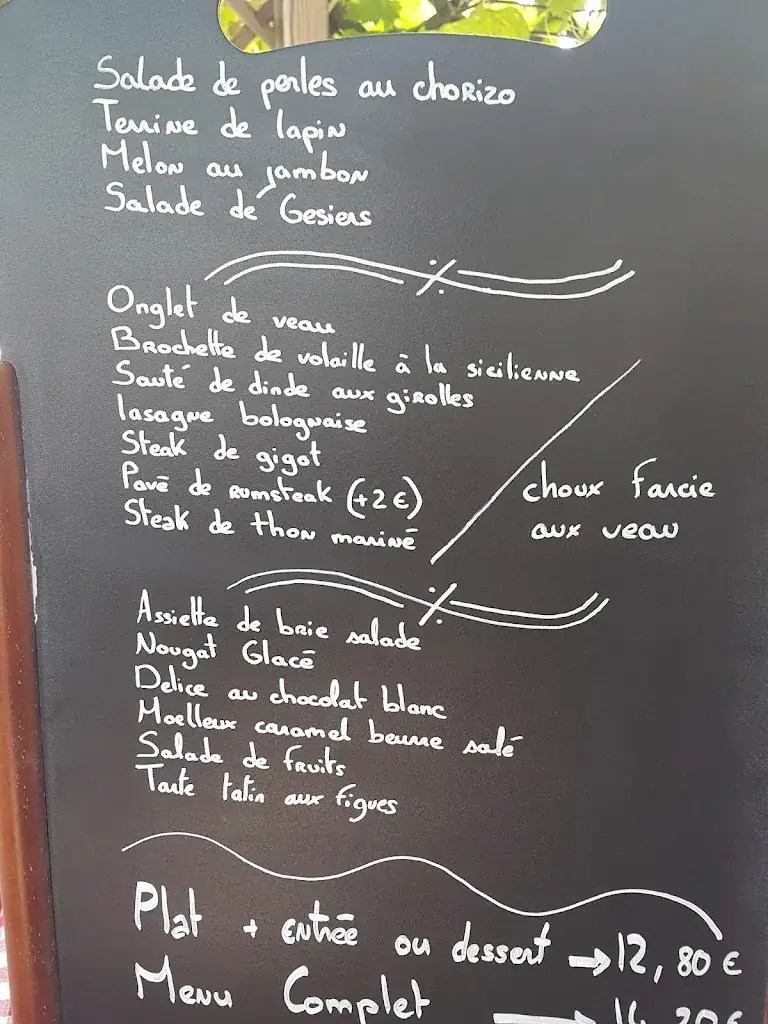 Salade de perles au chorizo
Terrine de lapin
Melon au jambon
Salade de Gesiers
Onglet de veau
Brochette de volaille à la sicilienne
Sauté de dinde aux girolles
lasagne bolognaise
Steak de gigot
Pavé de rumsteak (+2€)
Steak de thon mariné
choux farcie
aux veau
Assiette de brie salade
Nougat Glacé
Delice au chocolat blanc
Moelleux caramel beurre salé
Salade de fruits
Tarte tatin aux figues
Plat + entrée ou dessert → 12,80 €
Menu Complet